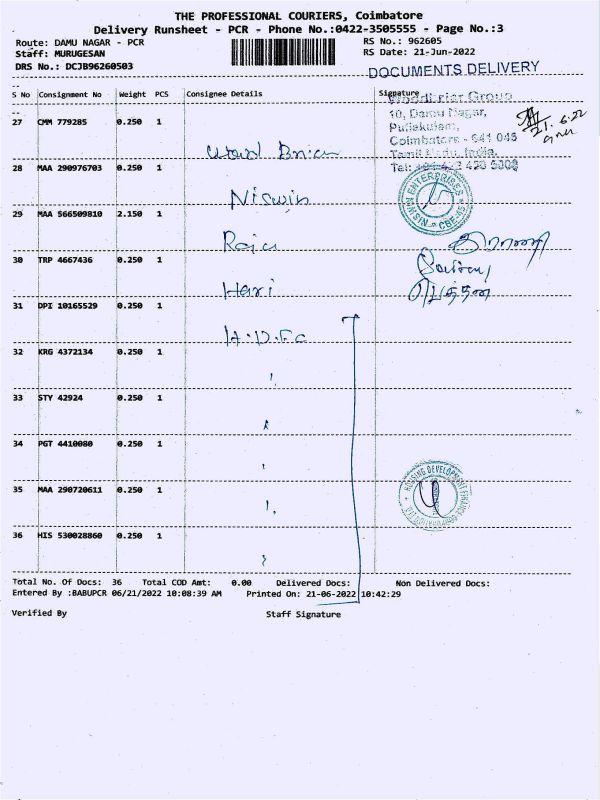 THE PROFESSIONAL COURIERS, Coimbatore
Delivery Runsheet - PCR - Phone No.:0422-3505555 - Page No.:3
Route: DAMU NAGAR - PCR
RS No.: 962605
Staff: MURUGESAN
RS Date: 21-Jun-2022
DRS No.: DCJB96260503
DOCUMENTS DELIVERY
S No Consignment No Weight PCS Consignee Details Signature
27 CMM 779285 0.250 1
10, Damu Nagar,
Puliakulam,
Coimbatore - 641 045
Tamil Nadu, India.
21.6.22
28 MAA 290976703 0.250 1 Niswin
ENTERPRISES
29 MAA 566509810 2.150 1 Raju
30 TRP 4667436 0.250 1 Hari
31 DPI 10165529 0.250 1 H.D.F.C
32 KRG 4372134 0.250 1
33 STY 42924 0.250 1
34 PGT 4410080 0.250 1
35 MAA 290720611 0.250 1
HOUSING DEVELOPMENT FINANCE CORPORATION
36 HIS 530028860 0.250 1
Total No. Of Docs: 36 Total COD Amt: 0.00 Delivered Docs: Non Delivered Docs:
Entered By :BABUPCR 06/21/2022 10:08:39 AM Printed On: 21-06-2022 10:42:29
Verified By Staff Signature